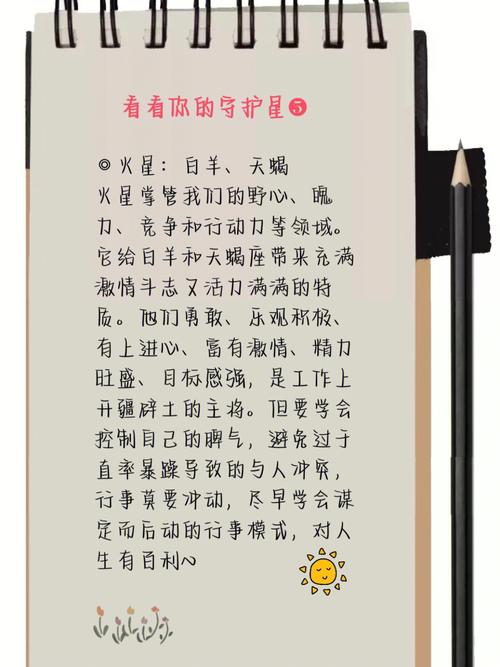 看看你的守护星❺
◎火星：白羊、天蝎
火星掌管我们的野心、魄
力、竞争和行动力等领域。
它给白羊和天蝎座带来充满
激情斗志又活力满满的特
质。他们勇敢、乐观积极、
有上进心、富有激情、精力
旺盛、目标感强，是工作上
开疆辟土的主将。但要学会
控制自己的脾气，避免过于
直率暴躁导致的与人冲突，
行事莫要冲动，尽早学会谋
定而后动的行事模式，对人
生有百利~